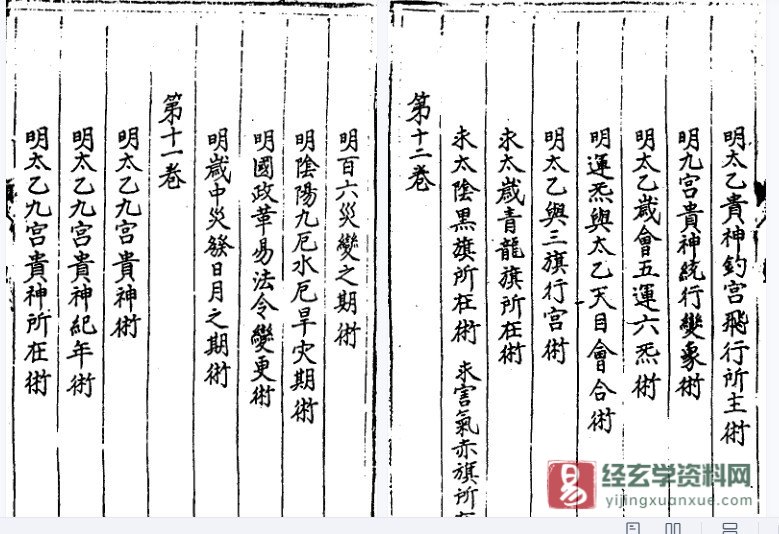 明百六災變之期術
明陰陽九厄水厄旱灾期術
明國政革易法令變更術
明歲中災發日月之期術
第十一卷
明太乙九宮貴神術
明太乙九宮貴神紀年術
明太乙九宮貴神所在術
明太乙貴神釣宮飛行所主術
明九宮貴神統行變象術
明太乙歲會五運六炁術
明運炁與太乙天目會合術
明太乙與三旗行宮術
求太歲青龍旗所在術
求太陰黑旗所在術 求害氣赤旗所
第十二卷
易 经玄学资料网
yijingxuanxue.com